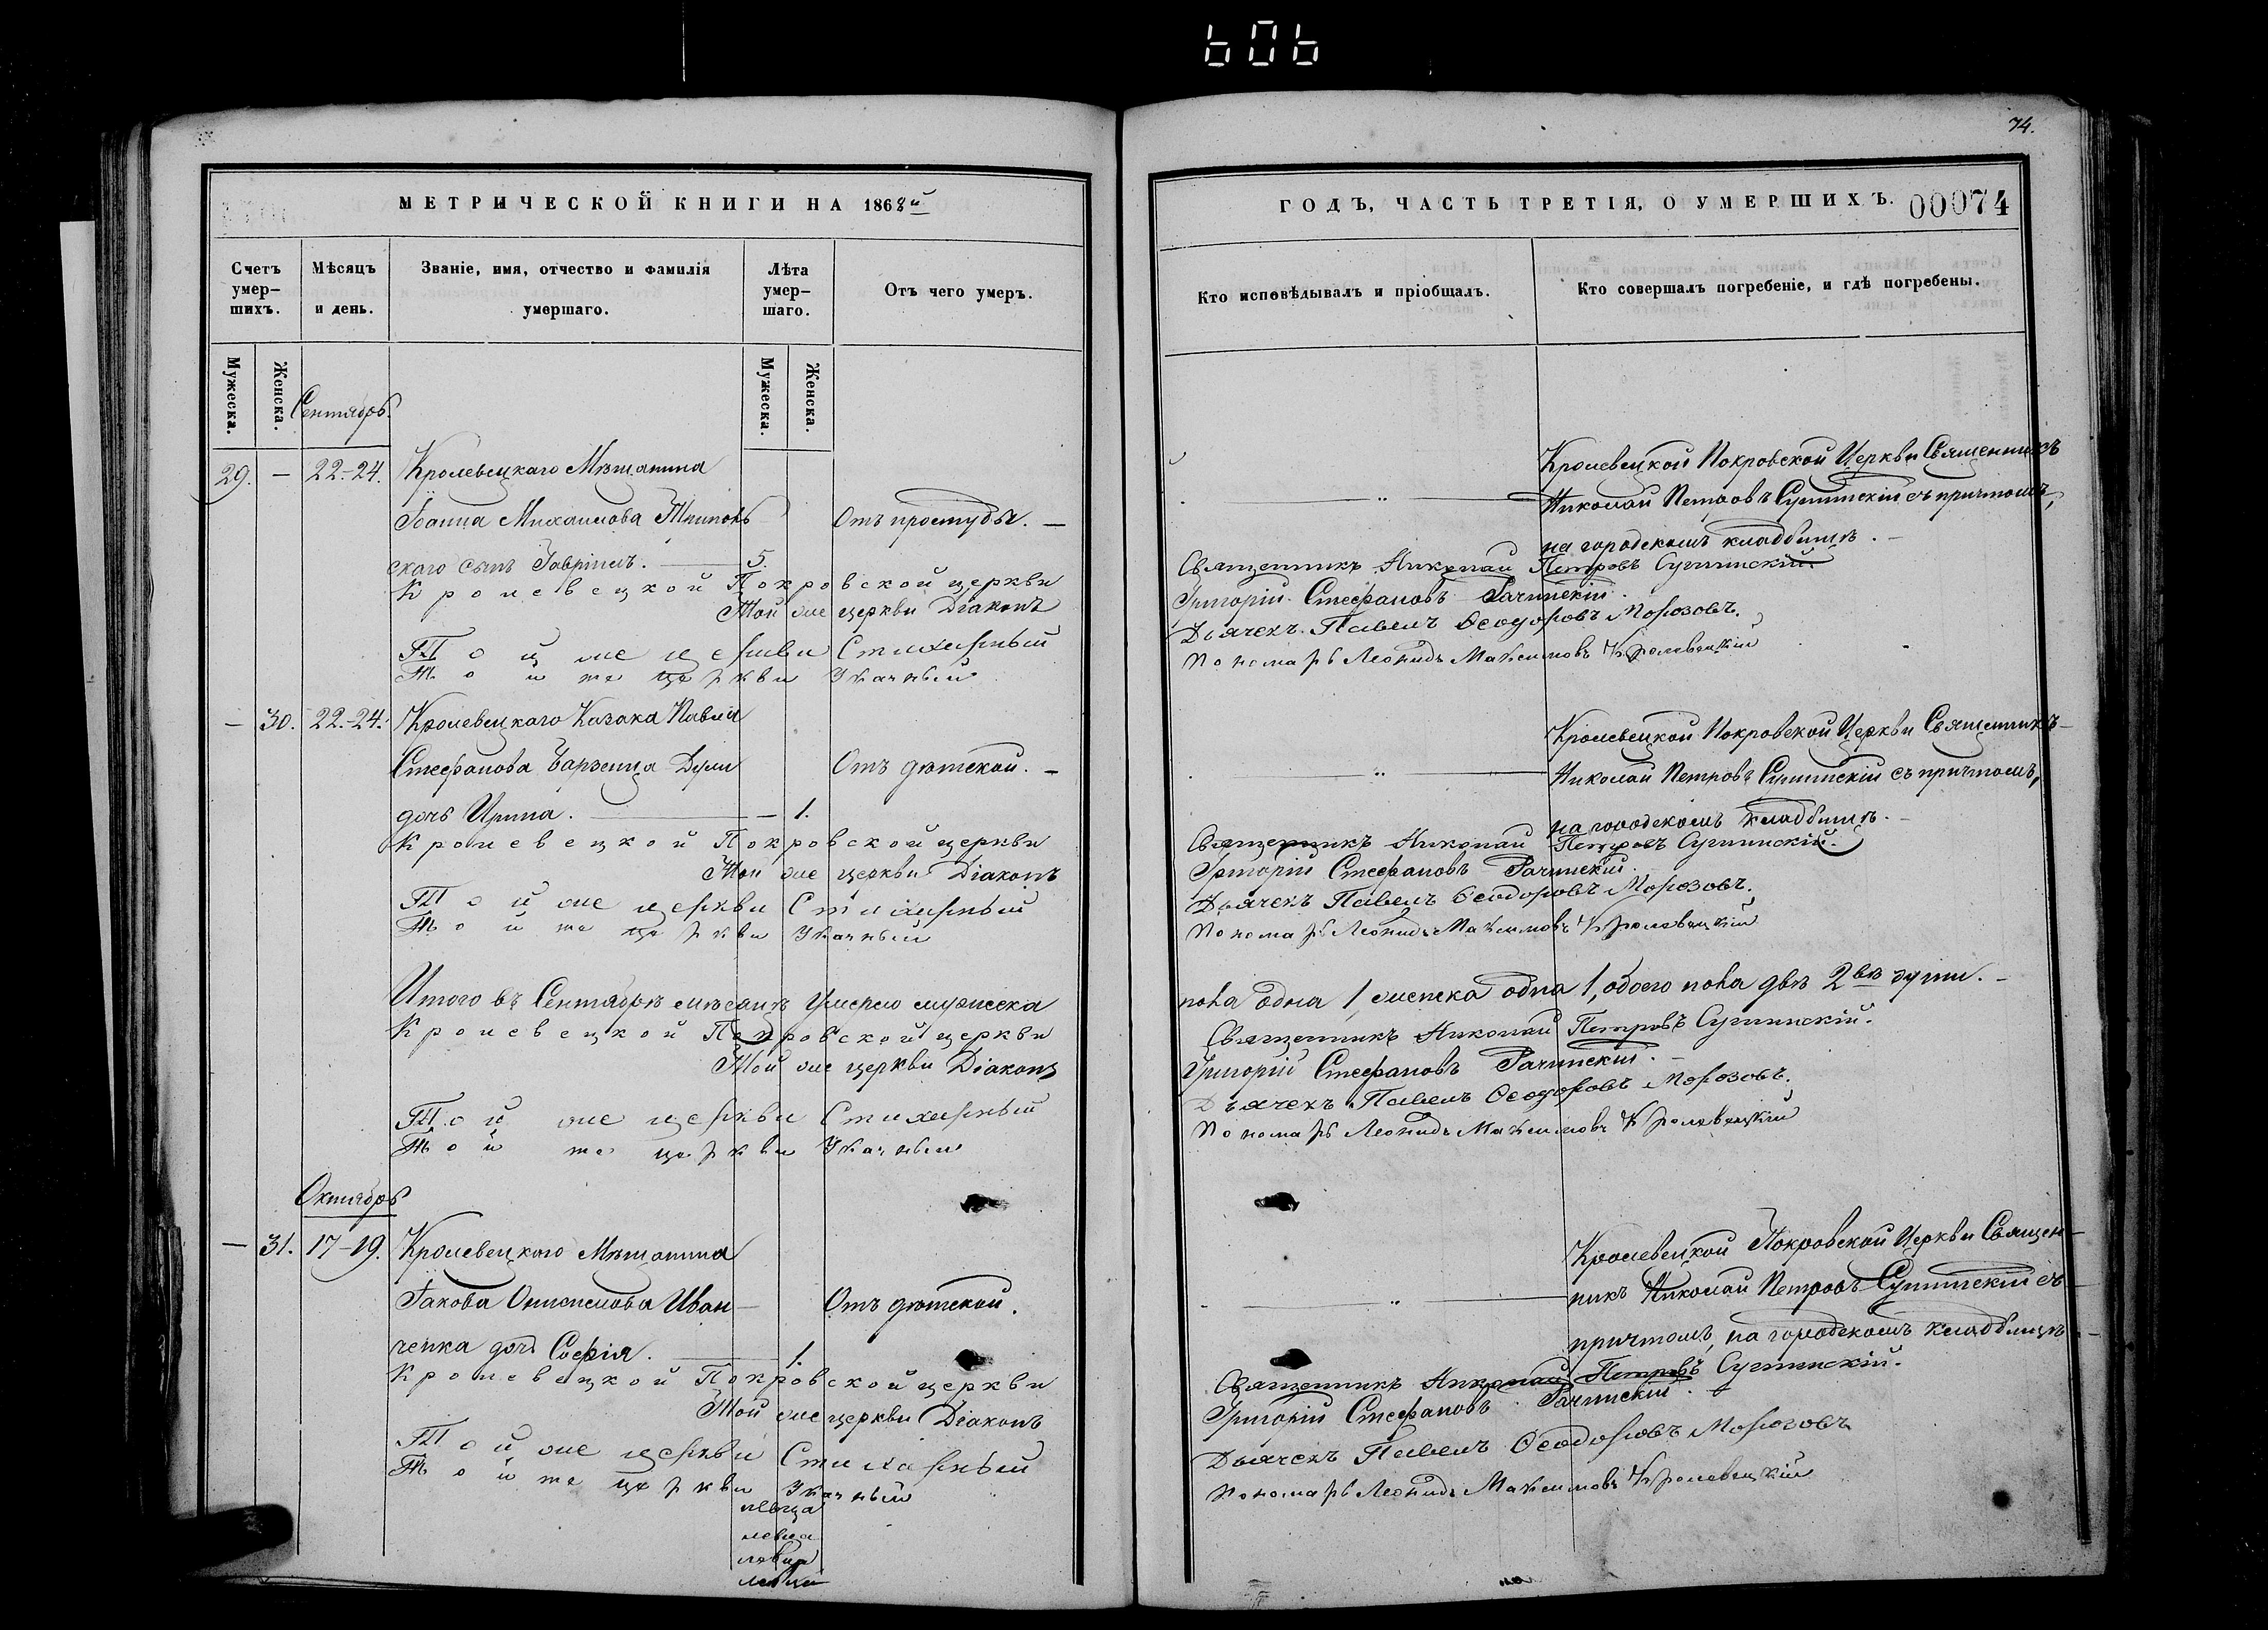 74.
МЕТРИЧЕСКОЙ КНИГИ НА 1868й
ГОДЪ, ЧАСТЬ ТРЕТІЯ, О УМЕРШИХЪ.
00074
Счетъ умер–шихъ.
Мѣсяцъ и день.
Званіе, имя, отчество и фамилія умершаго.
Лѣта умер–шаго.
Отъ чего умеръ.
Кто исповѣдывалъ и пріобщалъ.
Кто совершалъ погребеніе, и гдѣ погребены.
Мужеска.
Женска.
Мужеска.
Женска.
Сентябрь.
29. — 22.-24. Кролевецкаго Мѣщанина
Іоанна Михаилова
скаго сынъ Гавріилъ. 5.
Отъ простуды. —
Кролевецкой Покровской Церкви Священникъ
Николай Петровъ Сулимскій съ причтомъ,
на городскомъ кладбищѣ.
Кролевецкой Покровской церкви Священникъ Николай Петровъ Сулимскій
Той же церкви Діаконъ Григорій Стефановъ Рачинскій.
Той же церкви Стихарный Дьячекъ Павелъ Ѳеодоровъ Морозовъ.
Той же церкви Указный Пономарь Леонидъ Максимовъ Кролевецкій
— 30. 22.-24. Кролевецкаго Козака Павла
Стефанова
дочь Ирина. — 1.
Отъ дѣтской. —
Кролевецкой Покровской Церкви Священникъ
Николай Петровъ Сулимскій съ причтомъ,
на городскомъ кладбищѣ.
Кролевецкой Покровской церкви Священникъ Николай Петровъ Сулимскій.
Той же церкви Діаконъ Григорій Стефановъ Рачинскій
Той же церкви Стихарный Дьячекъ Павелъ Ѳеодоровъ Морозовъ.
Той же церкви Указный Пономарь Леонидъ Максимовъ Кролевецкій
Итого въ Сентябрѣ мѣсяцѣ умерло мужеска пола одна 1, женска одна 1, обоего пола двѣ 2вѣ души. —
Кролевецкой Покровской церкви Священникъ Николай Петровъ Сулимскій.
Той же церкви Діаконъ Григорій Стефановъ Рачинскій. —
Той же церкви Стихарный Дьячекъ Павелъ Ѳеодоровъ Морозовъ.
Той же церкви Указный Пономарь Леонидъ Максимовъ Кролевецкій
Октябрь
— 31. 17-19. Кролевецкаго Мѣщанина
Іакова Онисимова Иван—
ченка дочь Софія. 1.
Отъ дѣтской.
Кролевецкой Покровской Церкви Священ—
никъ Николай Петровъ Сулимскій съ
причтомъ, на городскомъ кладбищѣ
Кролевецкой Покровской церкви Священникъ Николай Петровъ Сулимскій.
Той же церкви Діаконъ Григорій Стефановъ Рачинскій.
Той же церкви Стихарный Дьячекъ Павелъ Ѳеодоровъ Морозовъ
Той же церкви Указный Пономарь Леонидъ Максимовъ Кролевецкій